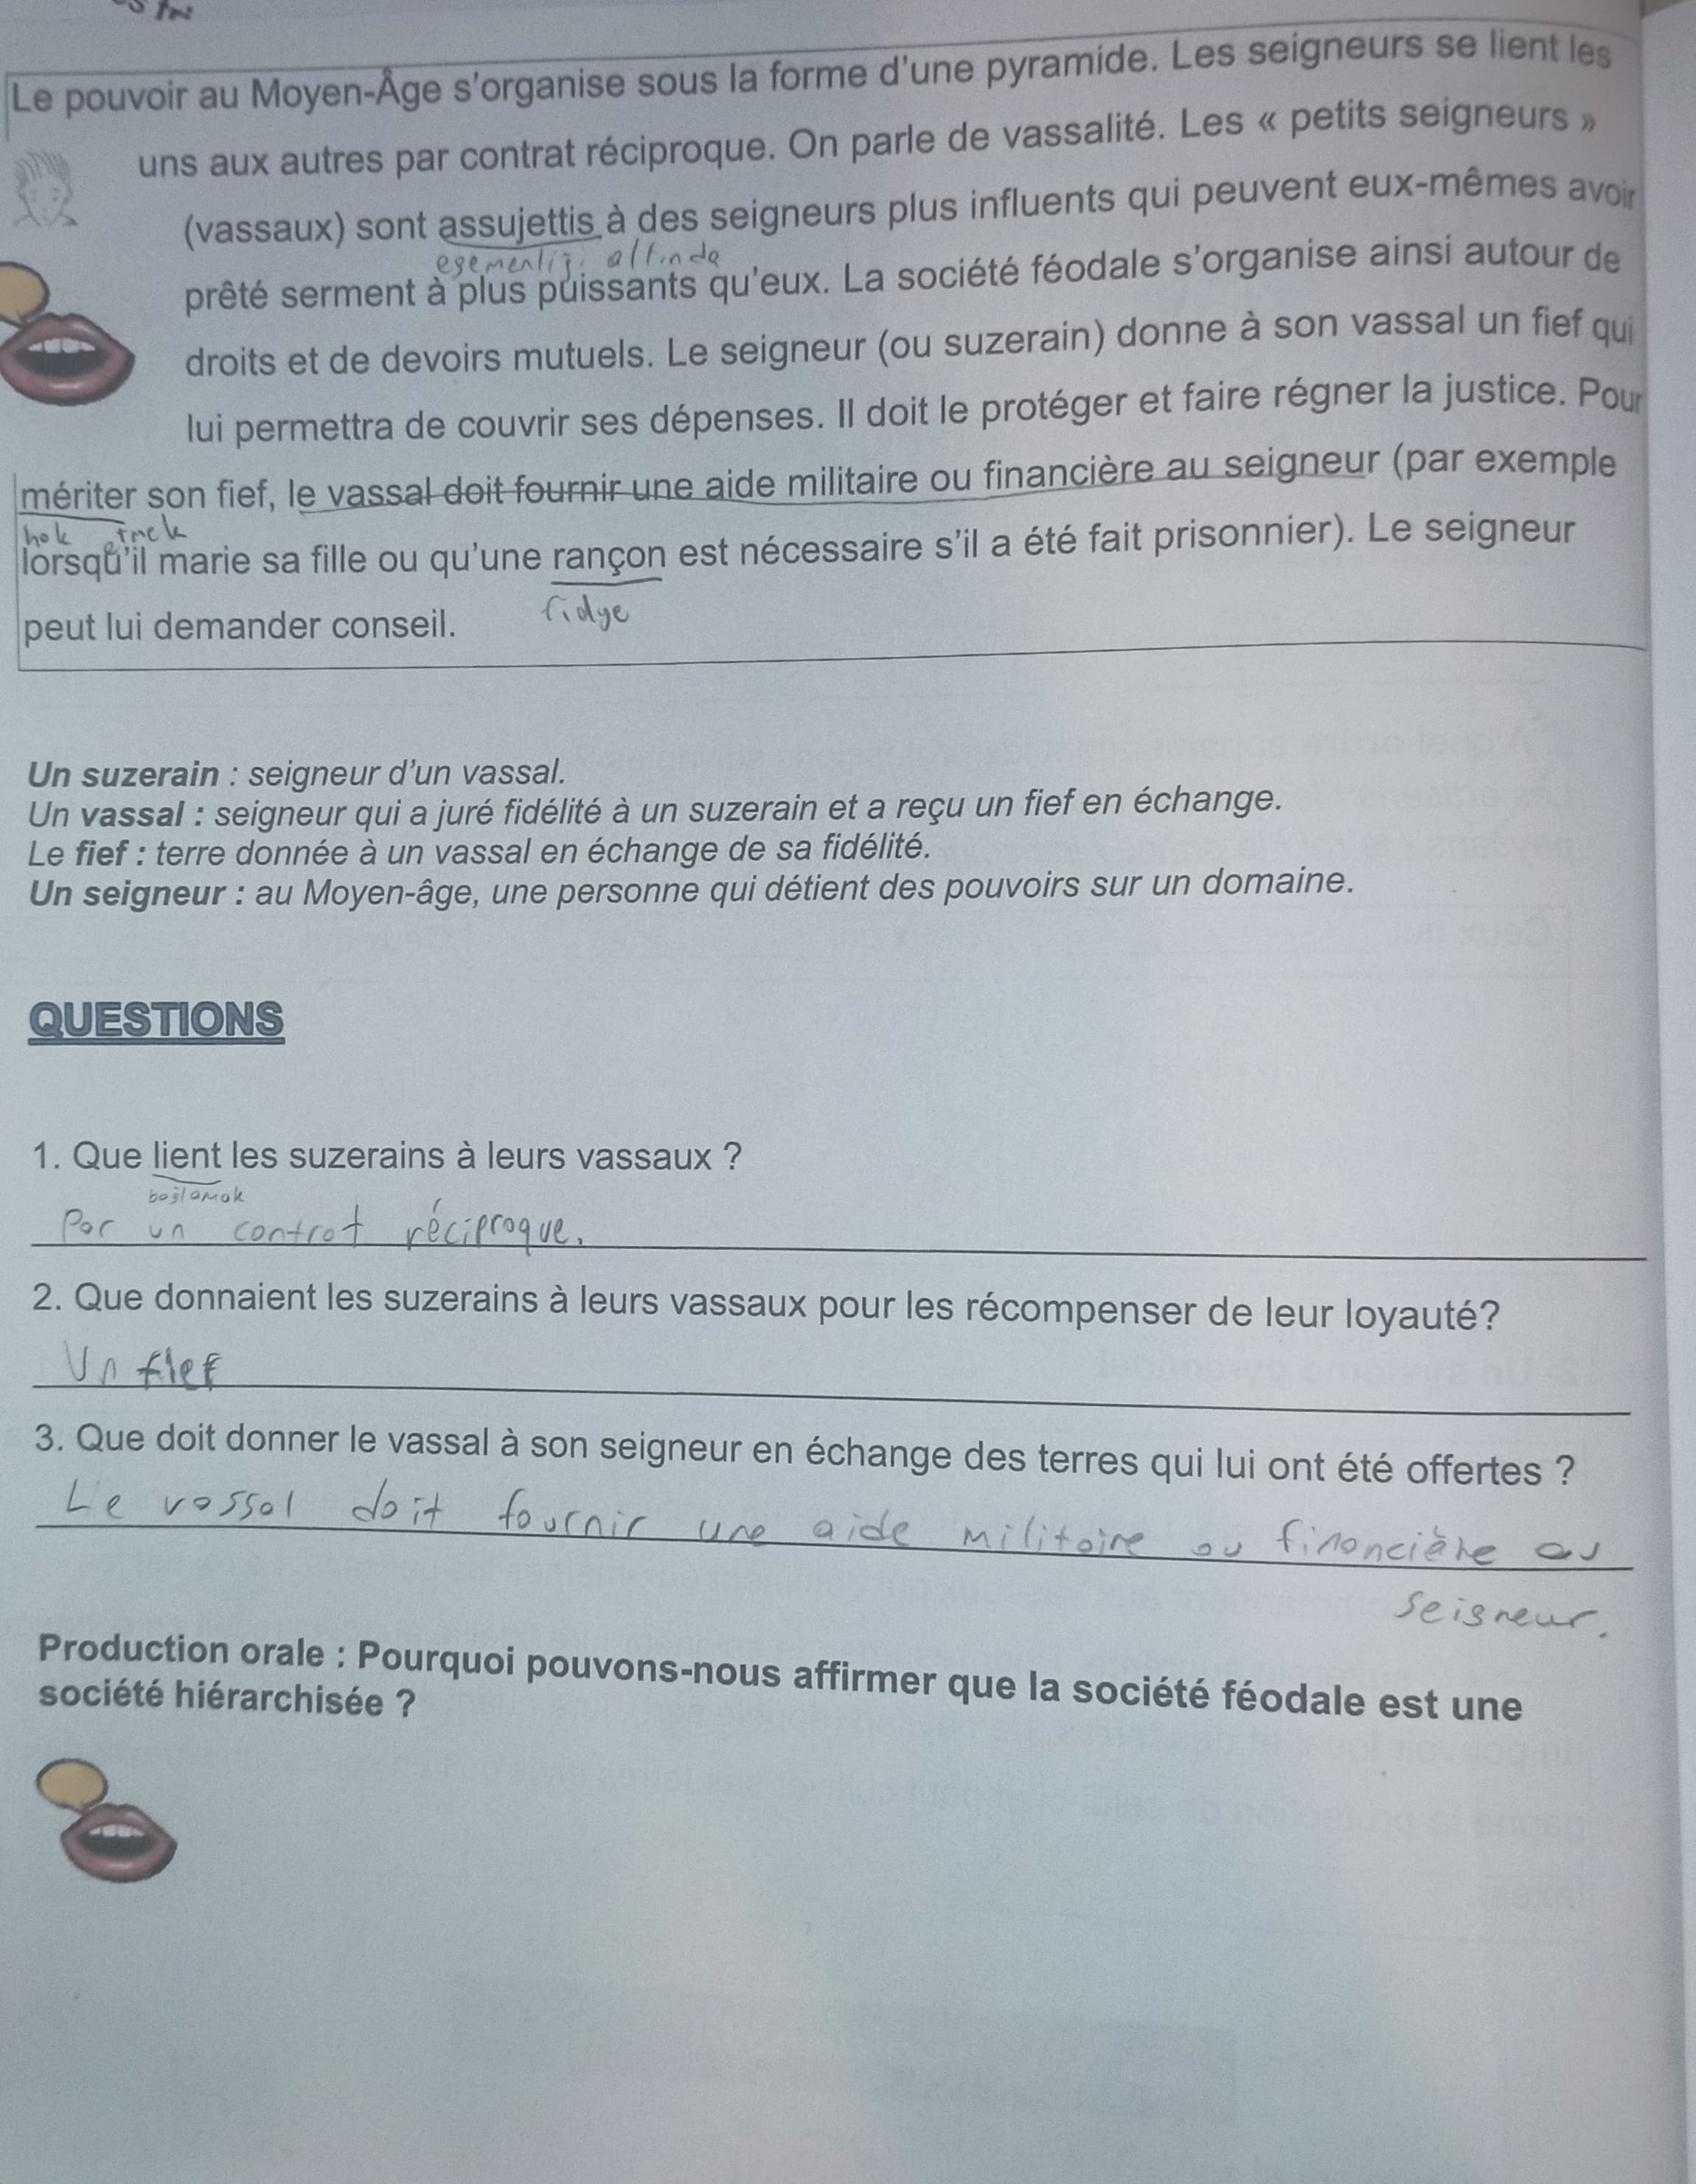 Le pouvoir au Moyen-Âge s'organise sous la forme d'une pyramide. Les seigneurs se lient les
uns aux autres par contrat réciproque. On parle de vassalité. Les « petits seigneurs »
(vassaux) sont assujettis à des seigneurs plus influents qui peuvent eux-mêmes avoir
egemenliği altında
prêté serment à plus puissants qu'eux. La société féodale s'organise ainsi autour de
droits et de devoirs mutuels. Le seigneur (ou suzerain) donne à son vassal un fief qui
lui permettra de couvrir ses dépenses. Il doit le protéger et faire régner la justice. Pour
mériter son fief, le vassal doit fournir une aide militaire ou financière au seigneur (par exemple
hak etmek
lorsqu'il marie sa fille ou qu'une rançon est nécessaire s'il a été fait prisonnier). Le seigneur
fidye
peut lui demander conseil.
Un suzerain : seigneur d'un vassal.
Un vassal : seigneur qui a juré fidélité à un suzerain et a reçu un fief en échange.
Le fief : terre donnée à un vassal en échange de sa fidélité.
Un seigneur : au Moyen-âge, une personne qui détient des pouvoirs sur un domaine.
QUESTIONS
1. Que lient les suzerains à leurs vassaux ?
bağlamak
Par un contrat réciproque.
2. Que donnaient les suzerains à leurs vassaux pour les récompenser de leur loyauté?
Un fief
3. Que doit donner le vassal à son seigneur en échange des terres qui lui ont été offertes ?
Le vassal doit fournir une aide militaire ou financière au
seigneur.
Production orale : Pourquoi pouvons-nous affirmer que la société féodale est une
société hiérarchisée ?